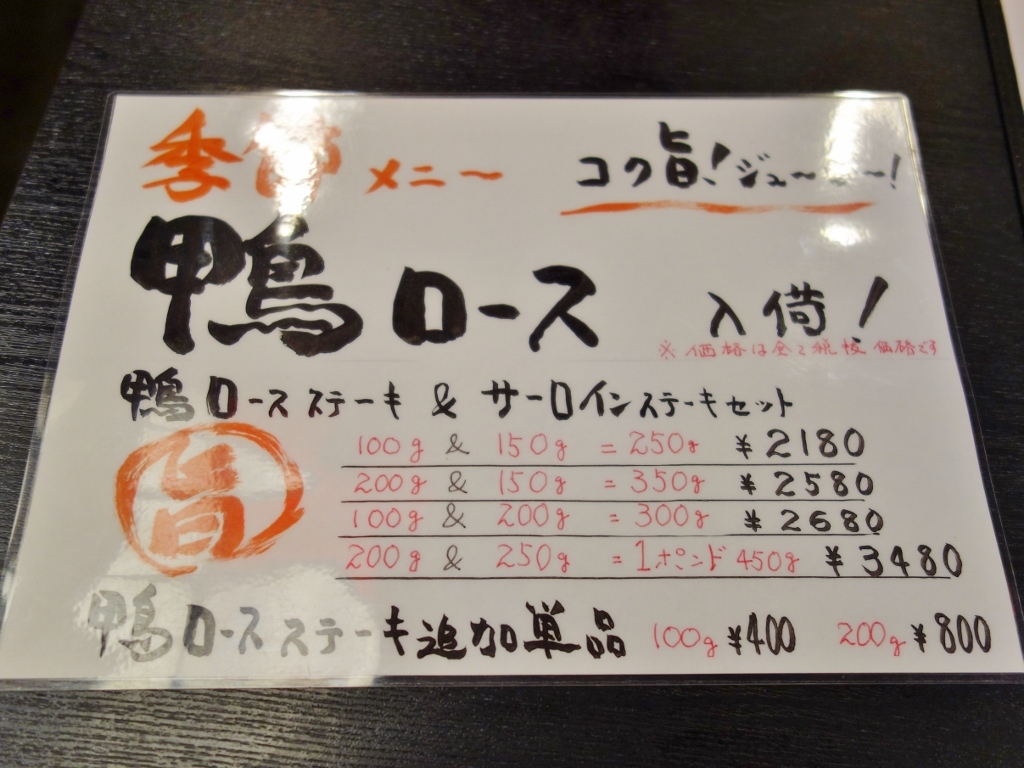 季節 メニ〜
コク旨!ジュ〜シ〜!
鴨ロース 入荷!
※価格は全て税抜価格です
鴨ロースステーキ & サーロインステーキセット
旨
100g & 150g = 250g ¥2180
200g & 150g = 350g ¥2580
100g & 200g = 300g ¥2680
200g & 250g = 1ポンド450g ¥3480
鴨ロースステーキ追加単品 100g ¥400 200g ¥800